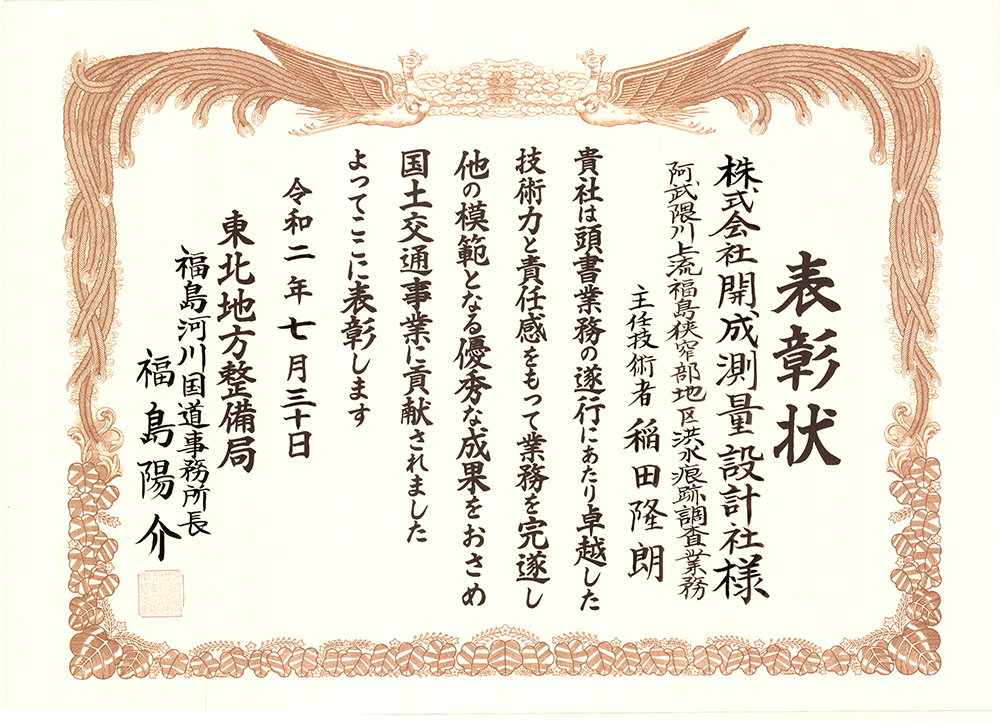 表彰状
株式会社開成測量設計社様
阿武隈川上流福島狭窄部地区洪水痕跡調査業務
主任技術者 稲田隆朗
貴社は頭書業務の遂行にあたり卓越した
技術力と責任感をもって業務を完遂し
他の模範となる優秀な成果をおさめ
国土交通事業に貢献されました
よってここに表彰します
令和二年七月三十日
東北地方整備局
福島河川国道事務所長
福島陽介